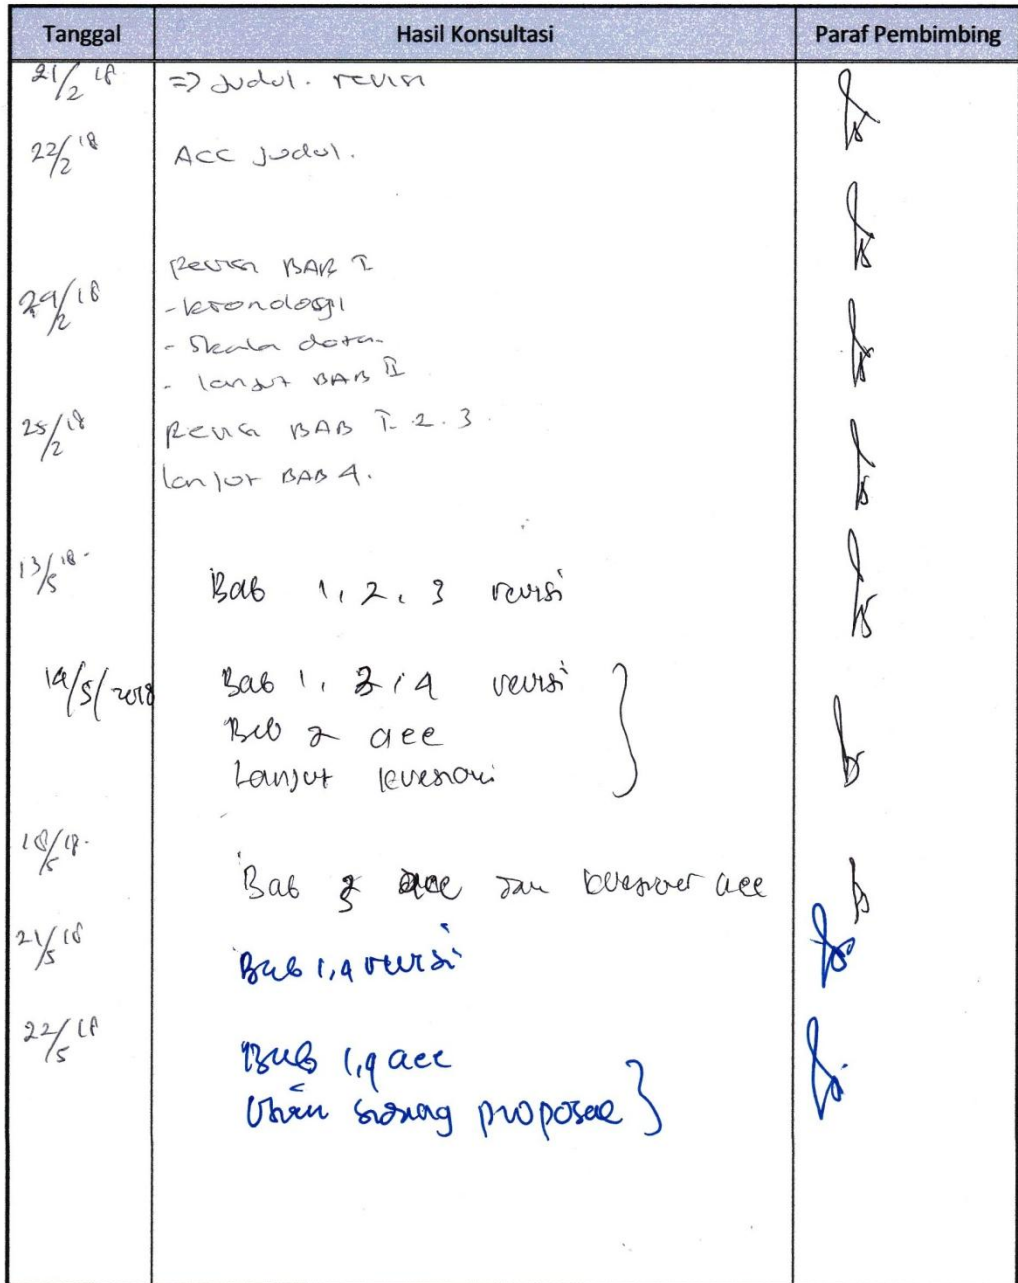 Tanggal Hasil Konsultasi Paraf Pembimbing
21/2 18 => Judul. revisi
22/2 18 ACC Judul.
Revisi BAB I
/2 18 - kronologi
- Skala data
- lanjut BAB II
25/2 18 Revisi BAB I. 2. 3.
lanjut BAB 4.
13/5 18. Bab 1, 2, 3 revisi
14/5/2018 Bab 1, 3, 4 revisi
Bab 2 acc
Lanjut
18/5 18. Bab 3 acc dan kuesioner acc
21/5 18 Bab 1,4 revisi
22/5 18 Bab 1,4 acc
Ujian sidang proposal